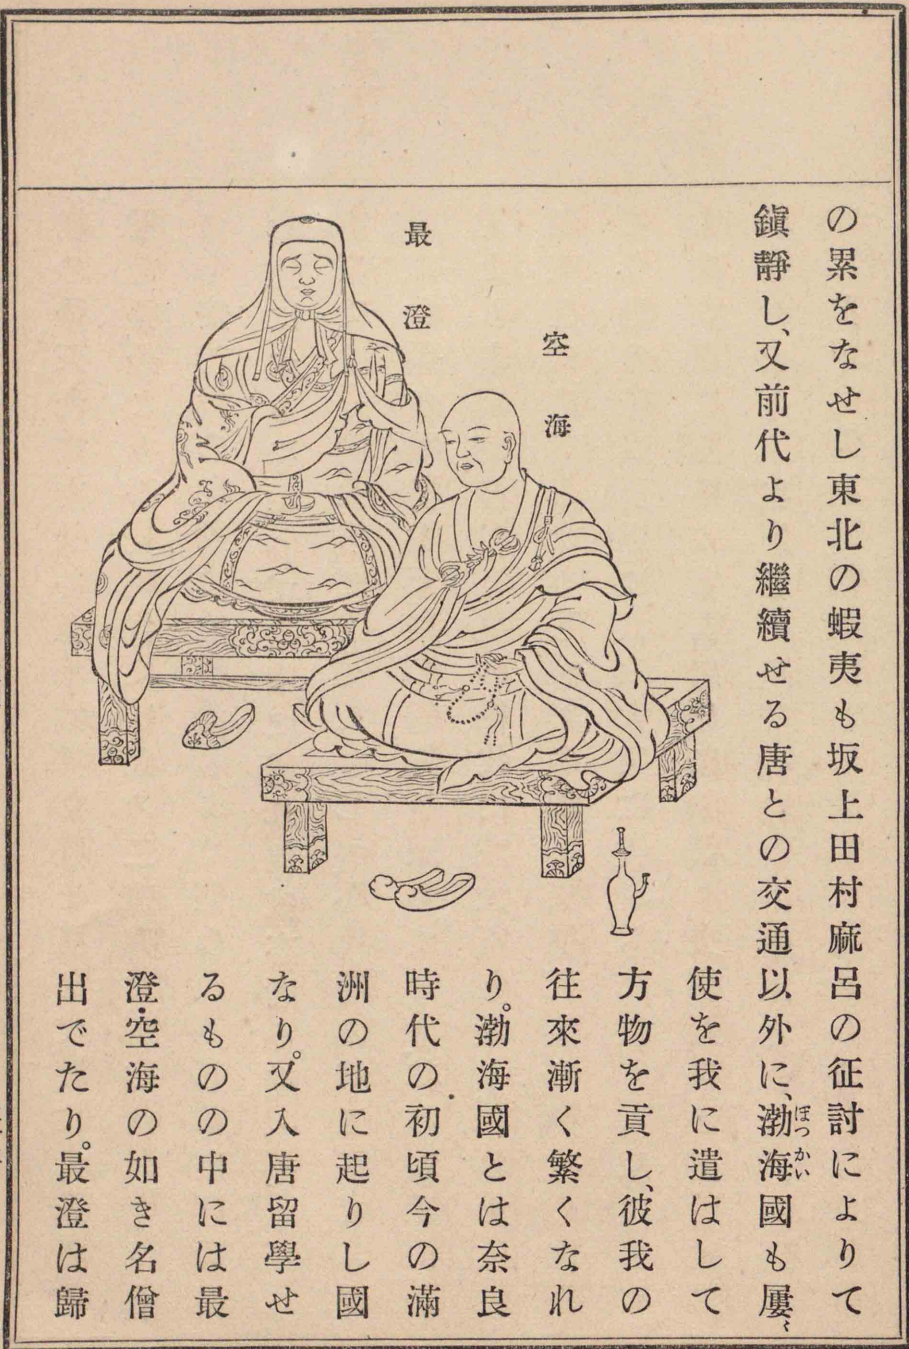 の累をなせし東北の蝦夷も坂上田村麻呂の征討によりて
鎭靜し、又前代より繼續せる唐との交通以外に、渤海國も屢〻
ぼつかい
使を我に遣はして
方物を貢し、彼我の
往來漸く繁くなれ
り。渤海國とは奈良
時代の初頃今の滿
洲の地に起りし國
なり。又入唐留學せ
るものの中には最
澄・空海の如き名僧
出でたり。最澄は歸
空海
最澄